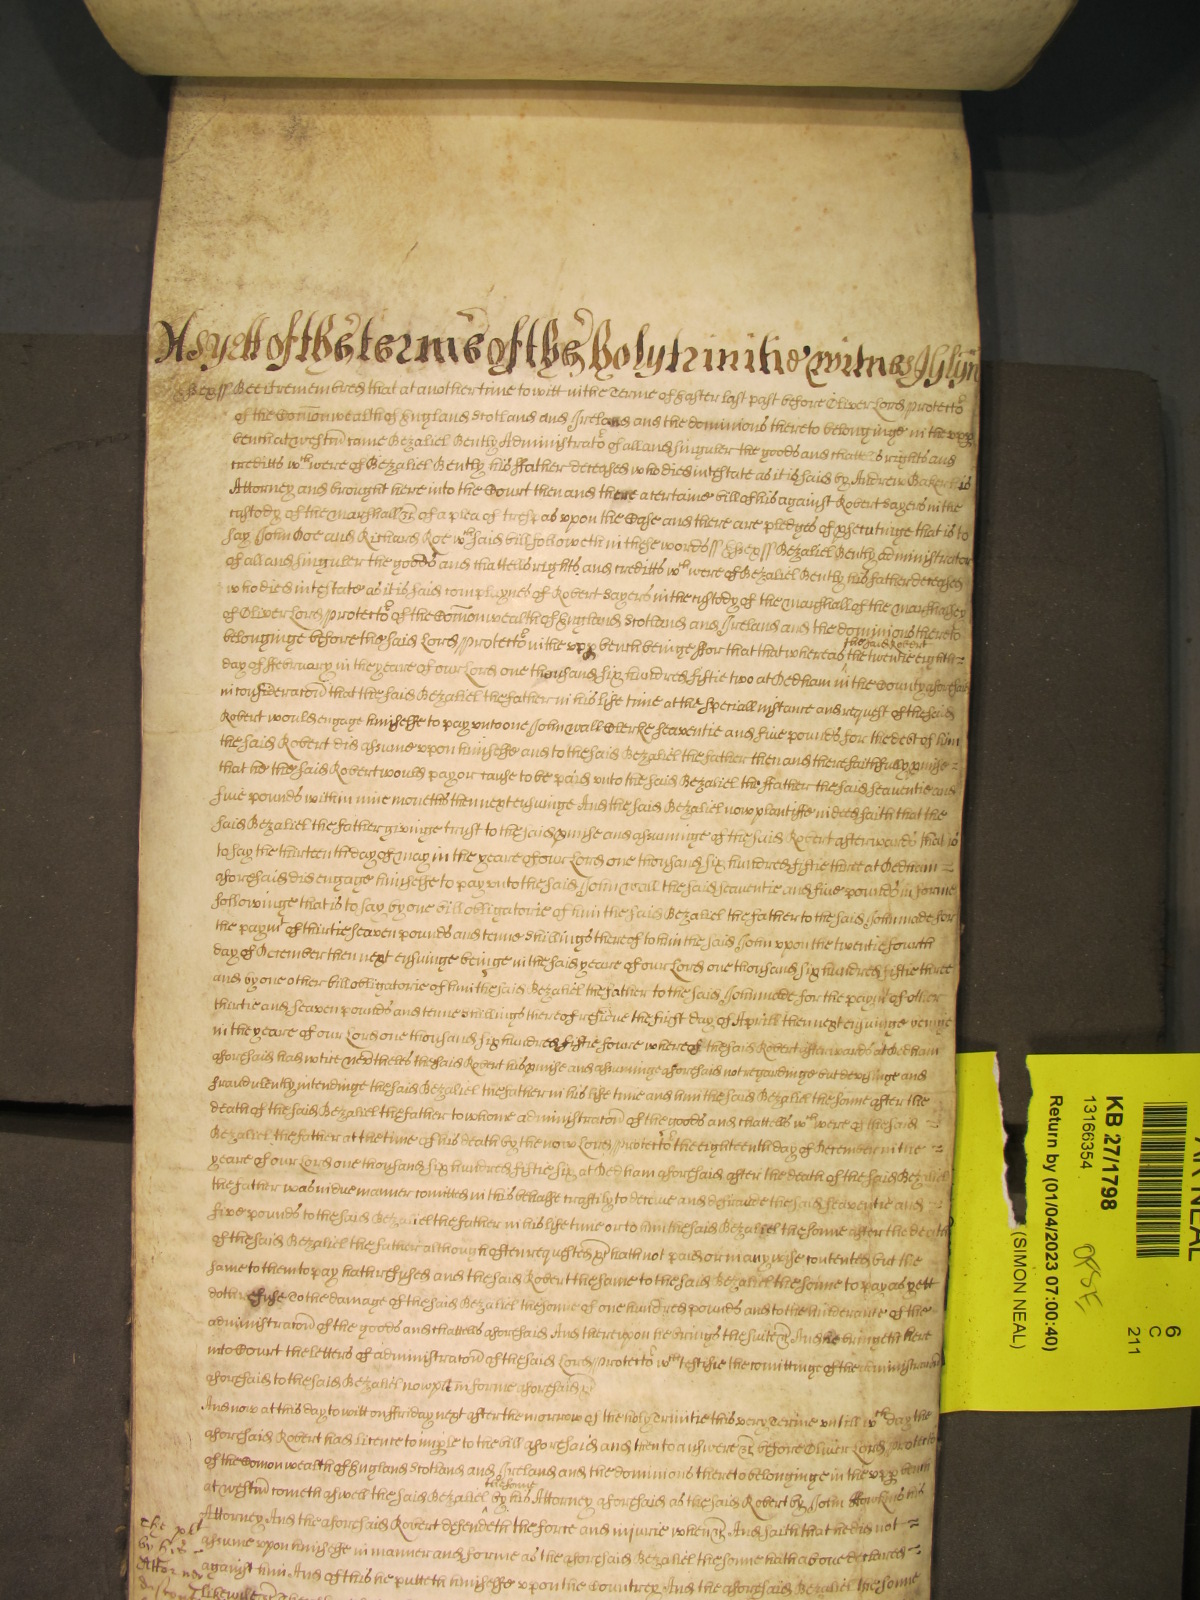 As yett of the terme of the Holy trinitie witnes
Essex ss Bee it remembred that at another time to witt in the Terme of Easter last past before Oliver Lord Protector
of the Comonwealth of England Scotland and Ireland and the dominions thereto belonginge in the upp
bench at Westm came Bezaliel Bently Administrator of all and singuler the goods and chattells rights and
creditts wch were of Bezaliel Bently his ffather deceased who died intestate as it is said by Andrew Baker his
Attorney and brought here into the Court then and there a certaine bill of his against Robert Sayers in the
custody of the marshall &c of a plea of trespas upon the Case and there are pledges of psecutinge that is to
say John Doe and Richard Roe wch said bill followeth in these words ss Essex ss Bezaliel Bently administrator
of all and singuler the goods and chattells rights and creditts wch were of Bezaliel Bently his father deceased
who died intestate as it is said complaynes of Robert Sayers in the custody of the marshall of the marshalsey
of Oliver Lord Protector of the Comonwealth of England Scotland and Ireland and the dominions thereto
belonginge before the said Lord Protector in the upp bench beinge ffor that that whereas the twentie eighth
the said Robert
day of ffebruary in the yeare of our Lord one thousand six hundred fiftie two at Dedham in the County aforesaid
in consideracon that the said Bezaliel the father in his life time at the speciall instance and request of the said
Robert would engage himselfe to pay unto one John Wall Clerke seaventie and five pounds for the debt of him
the said Robert did assume upon himselfe and to the said Bezaliel the father then and there faithfully pmise
that he the said Robert would pay or cause to be paid unto the said Bezaliel the ffather the said seaventie and
five pounds within nine moneths then next ensuinge And the said Bezaliel now plantiffe in deed saith that the
said Bezaliel the father givinge trust to the said pmise and assuminge of the said Robert afterwards that is
to say the thirteenth day of may in the yeare of our Lord one thousand six hundred fiftie three at Dedham
aforesaid did engage himselfe to pay unto the said John Wall the said seaventie and five pounds in forme
followinge that is to say by one bill obligatorie of him the said Bezaliel the father to the said John made for
the paymt of thirtie seaven pounds and tenne shillings thereof to him the said John upon the twentie fourth
day of December then next ensuinge beinge in the said yeare of our Lord one thousand six hundred fiftie three
and by one other bill obligatorie of him the said Bezaliel the father to the said John made for the paymt of other
thertie and seaven pounds and tenne shillings thereof residue the first day of Aprill then next ensuinge beinge
in the yeare of our Lord one thousand six hundred fiftie foure whereof the said Robert afterwards at Dedham
aforesaid had notice neverthelss the said Robert his pmise and assuminge aforesaid not regardinge but devisinge and
fraudulently intendinge the said Bezaliel the father in his life time and him the said Bezaliel the sonne after the
death of the said Bezaliel the father to whome administracon of the goods and chattells wch were of the said
Bezaliel the father at the time of his death by the now Lord Protector the eighteenth day of December in the
yeare of our Lord one thousand six hundred fiftie six at Dedham aforesaid after the death of the said Bezaliel
the father was in due manner comitted in this behalfe craftily to deceive and defraude the said seaventie and
five pounds to the said Bezaliel the father in his life time or to him the said Bezaliel the sonne after the death
of the said Bezaliel the father although often requested &c hath not paid or in any wise contented but the
same to them to pay hath refused and the said Robert the same to the said Bezaliel the sonne to pay as yett
doth refuse To the damage of the said Bezaliel the sonne of one hundred pounds and to the hinderance of the
administracon of the goods and chattells aforesaid And thereupon he brings the suite &c And he bringeth here
into Court the letters of administracon of the said Lord Protector wch testifie the comittinge of the administracon
aforesaid to the said Bezaliel now plt in forme aforesaid &c
And now at this day to witt on ffriday next after the morrow of the holy Trinitie this very Terme untill wch day the
aforesaid Robert had licence to imple to the bill aforesaid and then to answere &c before Oliver Lord Protector
of the Comonwealth of England Scotland and Ireland and the dominions thereto belonginge in the upp bench
at Westm cometh aswell the said Bezaliel by his Attorney aforesaid as the said Robert by John Hawkins his
the sonne
Attorney And the aforesaid Robert defendeth the force and injurie when &c And saith that he did not
assume upon himselfe in manner and forme as the aforesaid Bezaliel the sonne hath above declared
against him And of this he putteth himselfe upon the Countrey And the aforesaid Bezaliel the sonne
likewise &c
the plt
by his
Attorney
AR NEAL
KB 27/1798
13166354
Return by (01/04/2023 07:00:40)
(SIMON NEAL)
6
C
211